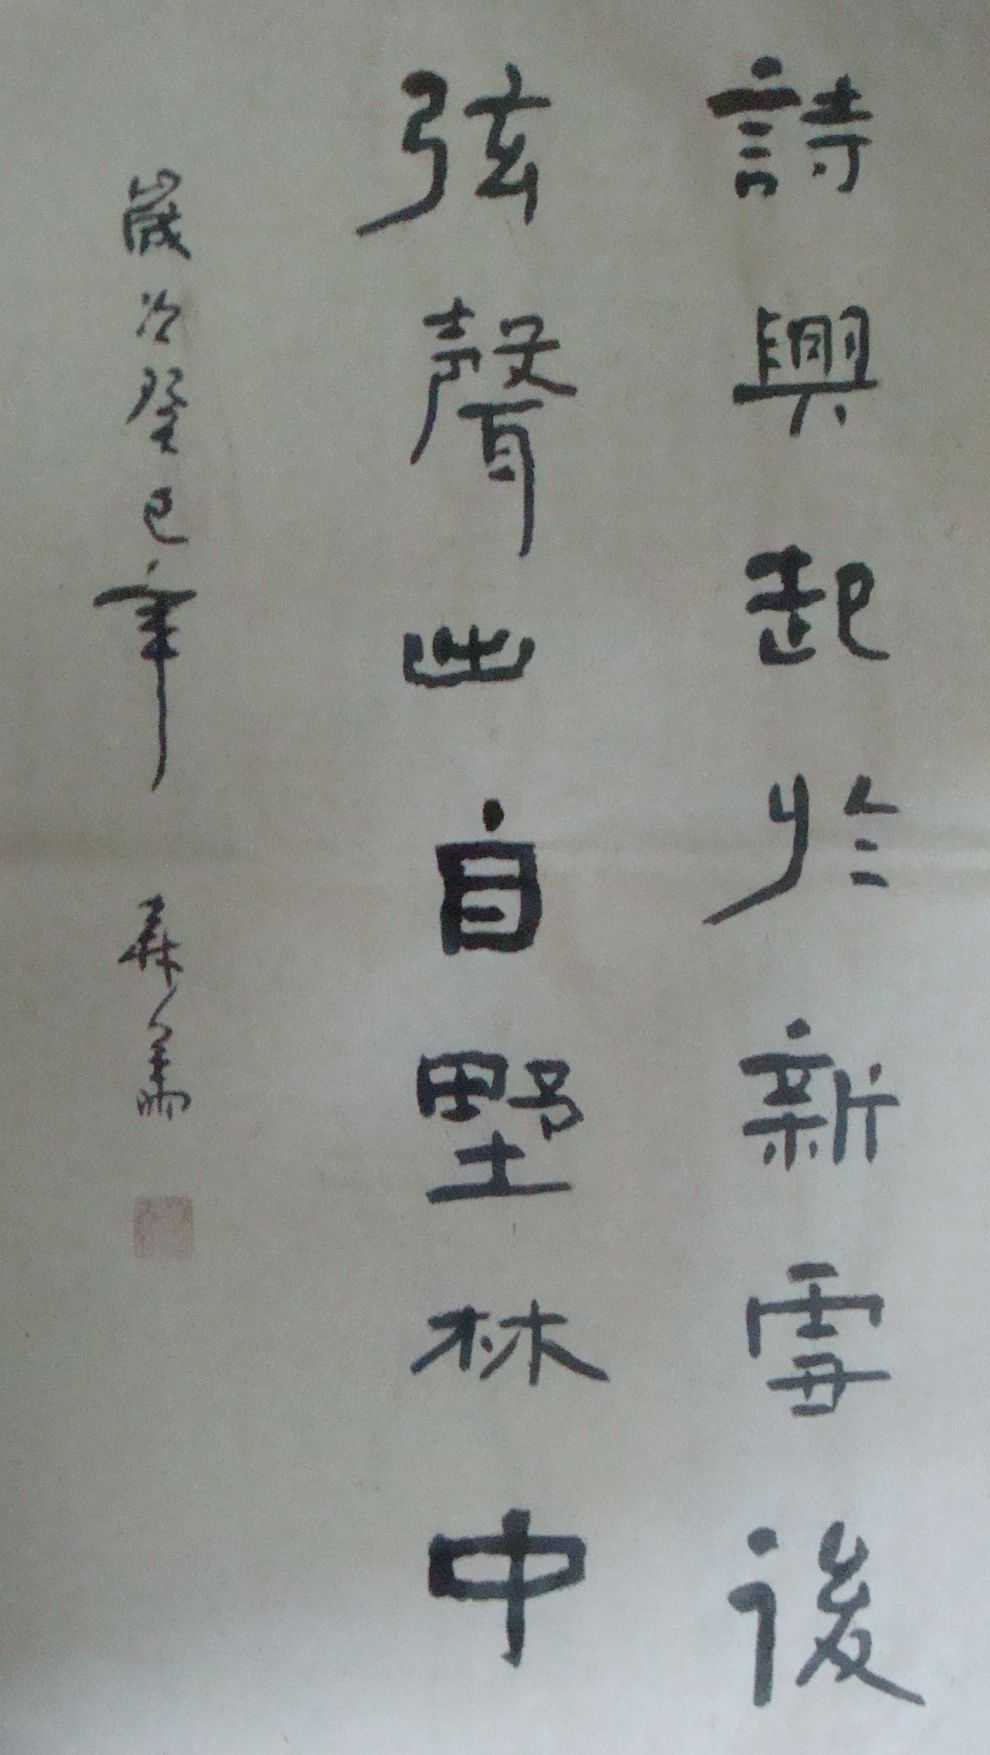 詩興起於新雪後
弦聲出自野林中
歲冷癸巳年